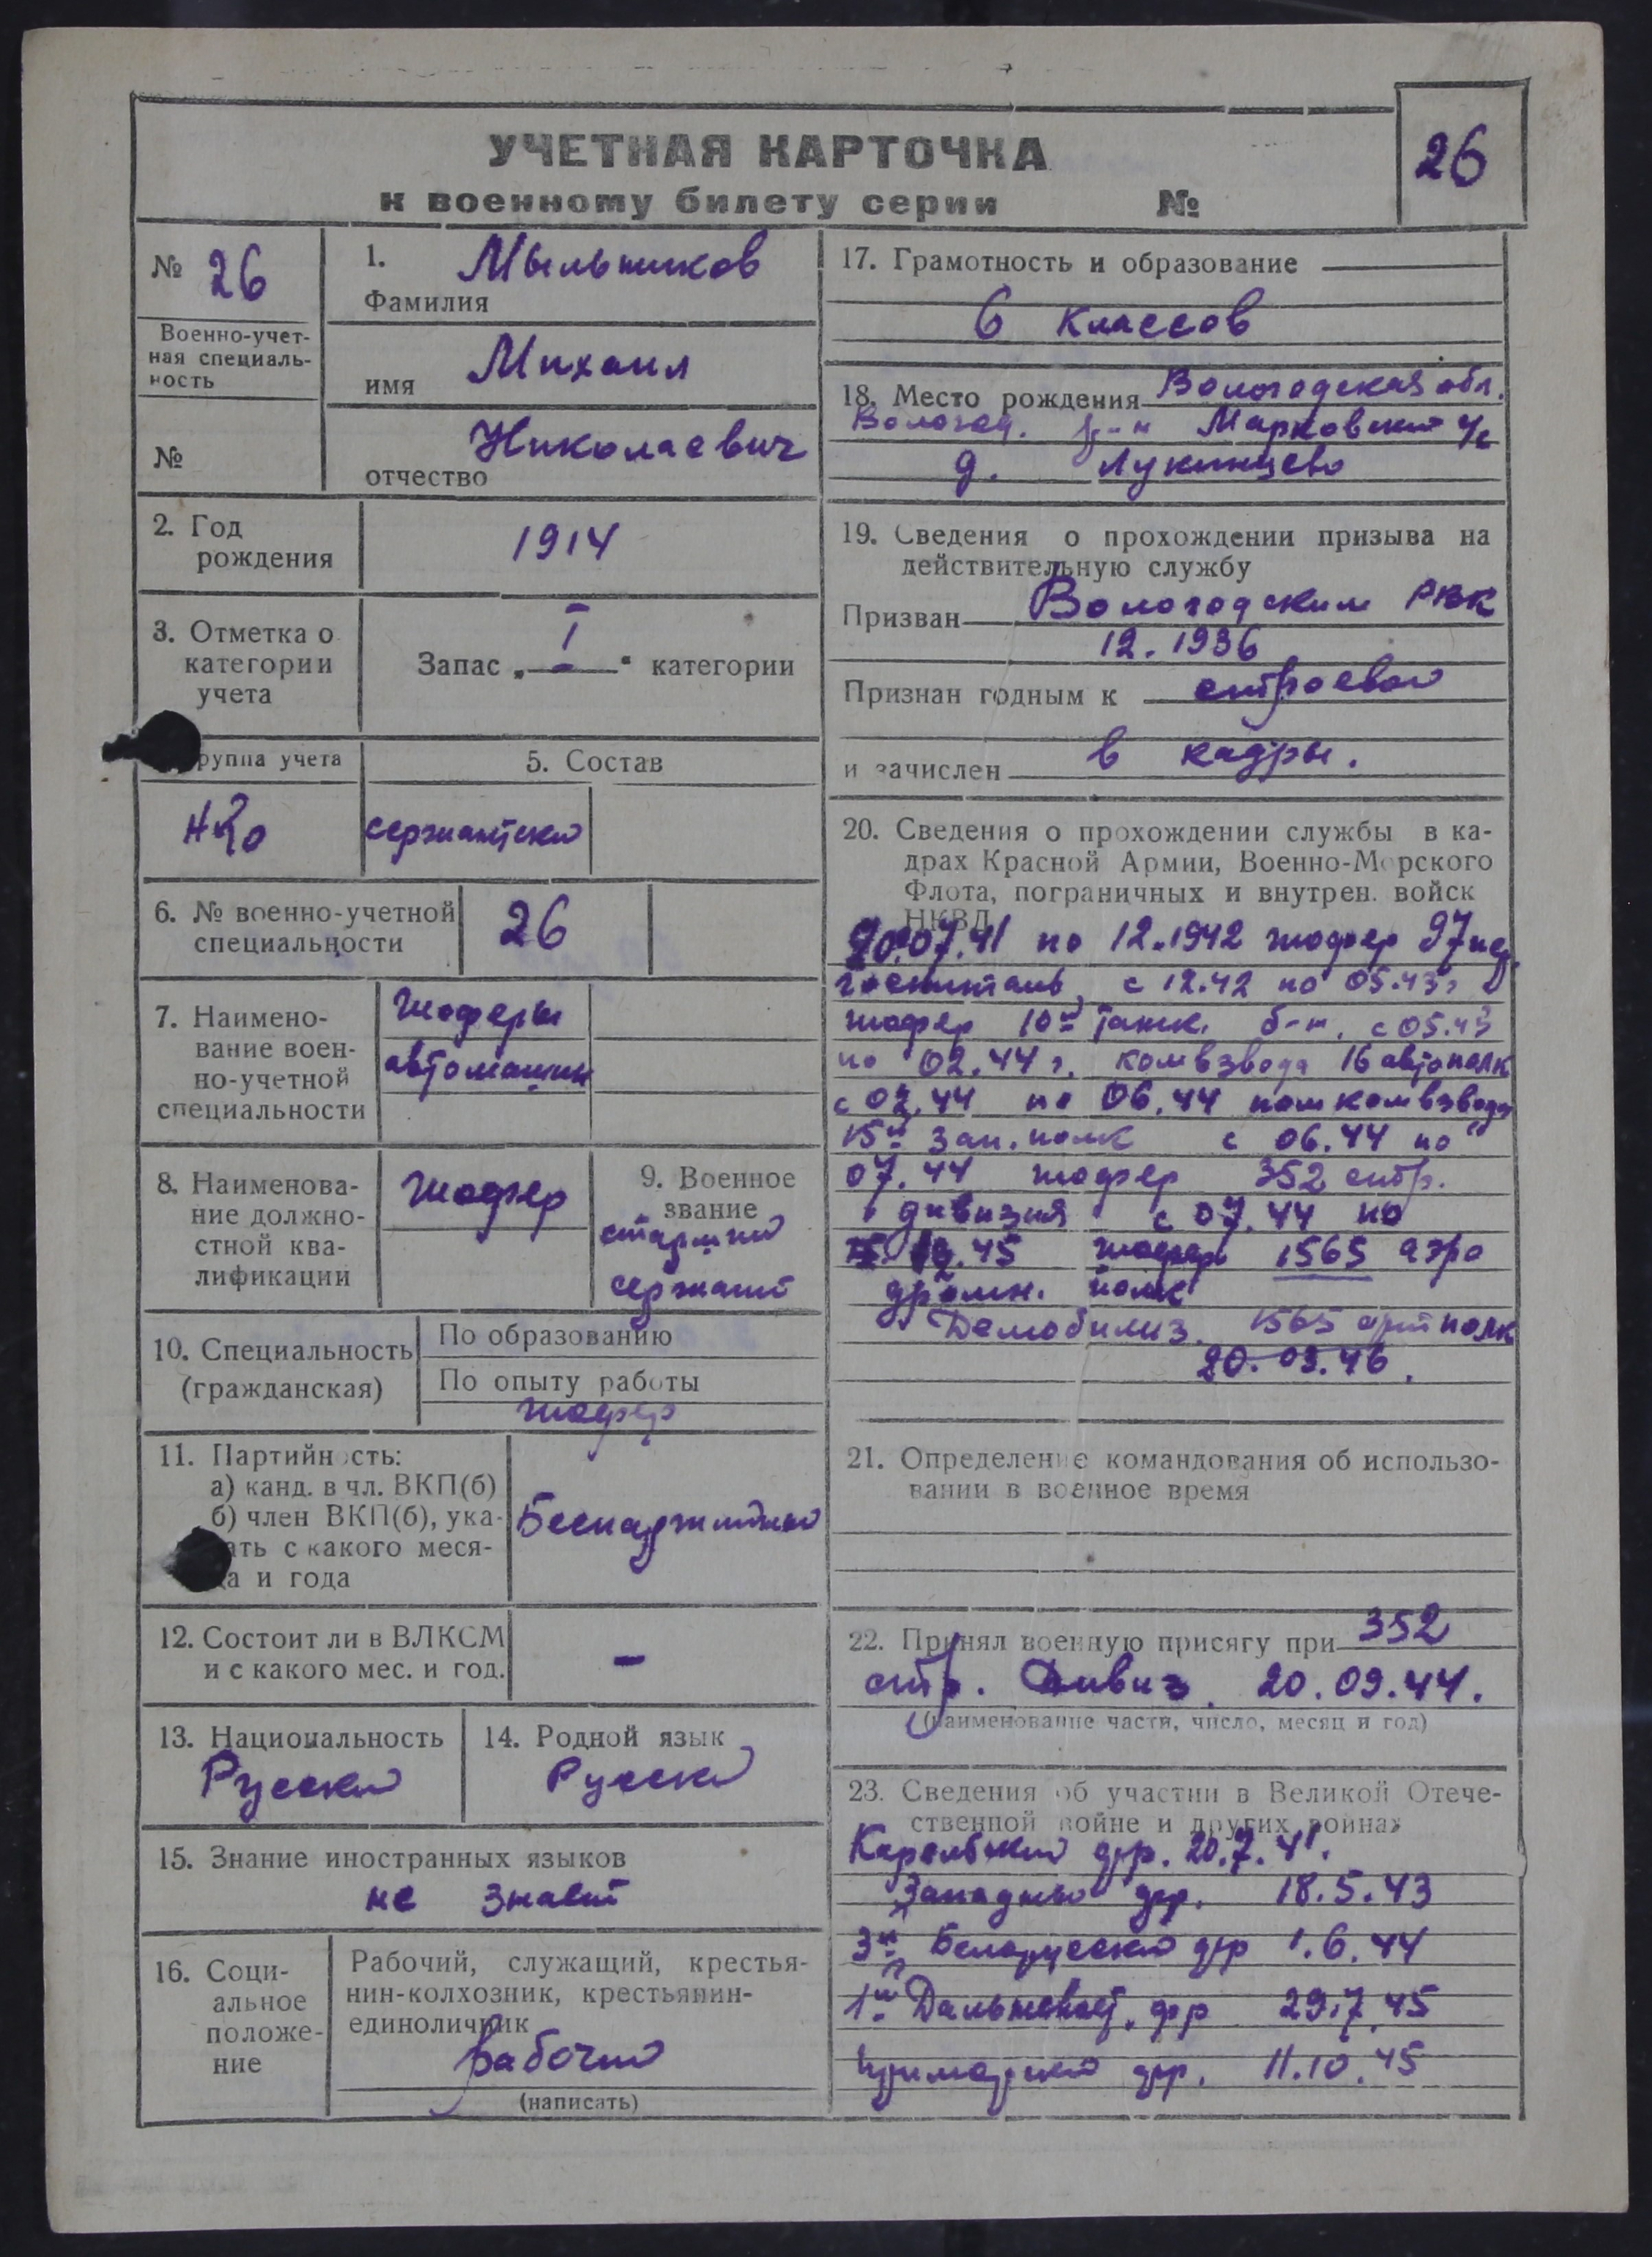 УЧЕТНАЯ КАРТОЧКА
к военному билету серии №
26
№ 26
Военно-учет-
ная специаль-
ность
№
1. Мыльников
Фамилия
имя Михаил
отчество Николаевич
2. Год
рождения
1914
3. Отметка о
категории
учета
Запас „ I “ категории
руппа учета
НКО
5. Состав
сержантский
6. № военно-учетной
специальности
26
7. Наимено-
вание воен-
но-учетной
специальности
Шоферы
автомашин
8. Наименова-
ние должно-
стной ква-
лификации
Шофер
9. Военное
звание
старший
сержант
10. Специальность
(гражданская)
По образованию
По опыту работы
шофер
11. Партийность:
а) канд. в чл. ВКП(б)
б) член ВКП(б), ука-
ать с какого меся-
ца и года
Беспартийный
12. Состоит ли в ВЛКСМ
и с какого мес. и год.
-
13. Национальность
Русский
14. Родной язык
Русский
15. Знание иностранных языков
не знает
16. Соци-
альное
положе-
ние
Рабочий, служащий, крестья-
нин-колхозник, крестьянин-
единоличник
Рабочий
(написать)
17. Грамотность и образование
6 классов
18. Место рождения Вологодская обл.
Вологод. р-н Марковский с/с
д. Лукинцево
19. Сведения о прохождении призыва на
действительную службу
Призван Вологодским РВК
12.1936
Признан годным к строевой
и зачислен в кадры.
20. Сведения о прохождении службы в ка-
драх Красной Армии, Военно-Морского
Флота, пограничных и внутрен. войск
НКВД
20.07.41 по 12.1942 шофер 97
госпиталь, с 12.42 по 05.43г
шофер 10й танк. б-н, с 05.43
по 02.44 г. комвзвода 16 автополк
с 02.44 по 06.44 помкомвзвода
15й зап. полк с 06.44 по
07.44 шофер 352 стр.
дивизия с 07.44 по
45 шофер 1565 аэро
дромн. полк
Демобилиз. 1565 арт полк
20.03.46.
21. Определение командования об использо-
вании в военное время
22. Принял военную присягу при 352
стр. Дивиз. 20.09.44.
(наименование части, число, месяц и год)
23. Сведения об участии в Великой Отече-
ственной войне и других войнах
Карельский фр. 20.7.41.
Западный фр. 18.5.43
3й Белорусский фр 1.6.44
1й Дальневост. фр 29.7.45
Приморский фр. 11.10.45